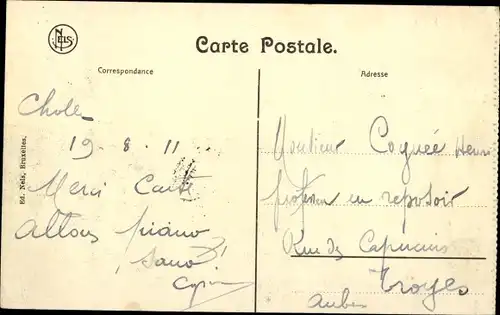 NELS
Carte Postale.
Correspondance
Adresse
Ed. Nels, Bruxelles.
19 . 8 . 11
Merci Carte
allons piano,
sano
Monsieur Coquée Henri
professeur en reposoir
Rue des Capucins
Troyes
Aube